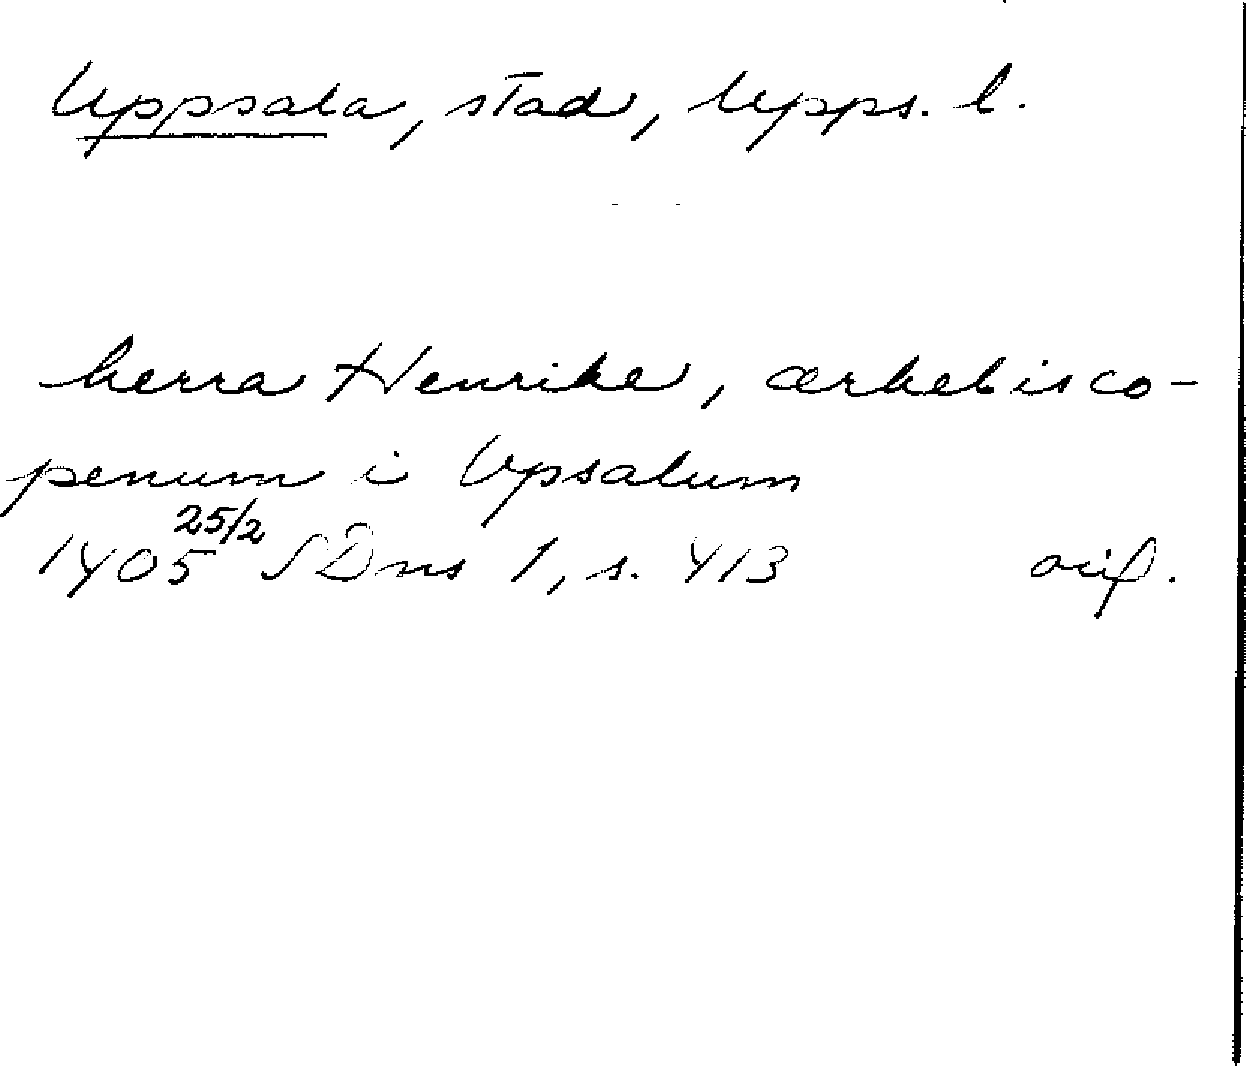 Uppsala, stad, Upps. l.
herra Henrike, ærkebisco-
penum i Upsalum
1405 25/2 SDns 1, s. 413 or.